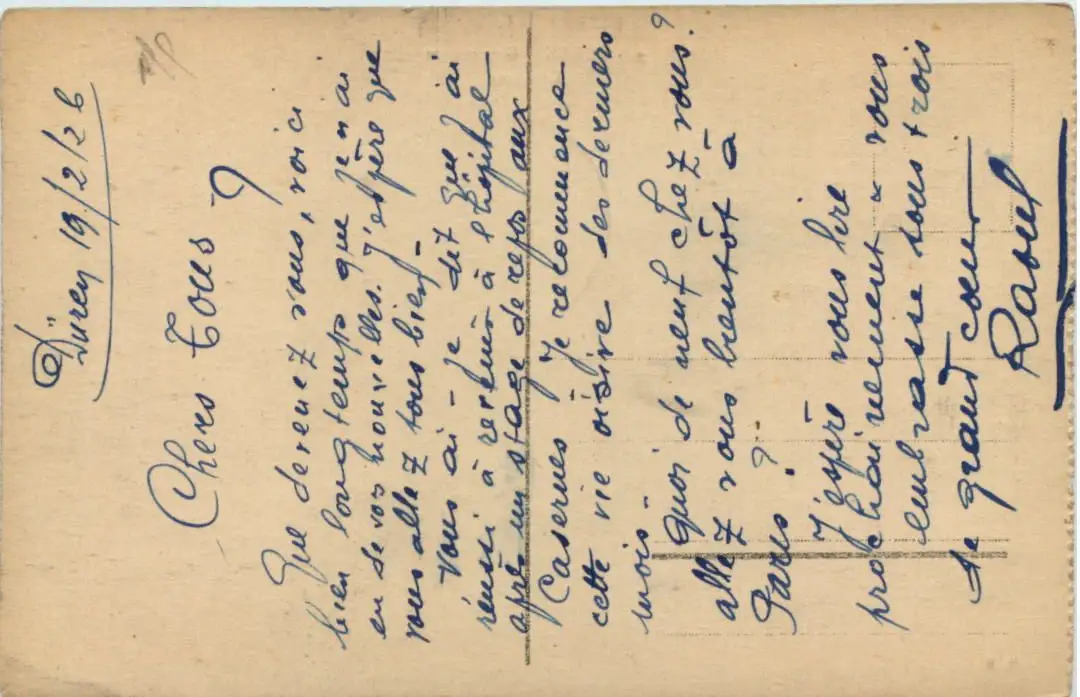 Düren 19/2/26
Chers Tous
Que devenez vous, voici
bien longtemps que je n'ai
eu de vos nouvelles. J'espère que
vous allez tous bien -
Vous ai-je dit que j'ai
réussi à rentrer à l'hôpital
après un stage de repos aux
Casernes. Je recommence
cette vie oisive des derniers
mois -
Quoi de neuf chez vous ?
allez vous bientôt à
Paris ?
J'espère vous lire
prochainement & vous
embrasse tous trois
de grand cœur
Raoul